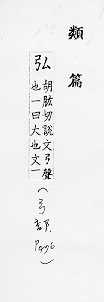 類篇
弘
胡肱切説文弓聲
也一曰大也文一
(弓部,P456)